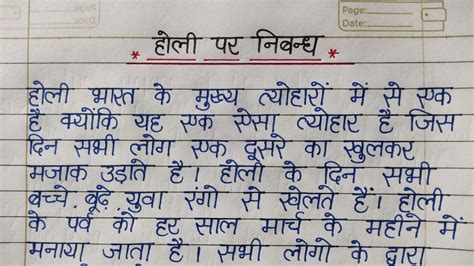 Page:
Date:
* होली पर निबन्ध *
होली भारत के मुख्य त्योहारों में से एक
है क्योंकि यह एक ऐसा त्योहार है जिस
दिन सभी लोग एक दूसरे का खुलकर
मजाक उड़ाते है। होली के दिन सभी
बच्चे, बूढ़े, युवा रंगो से खेलते हैं। होली
के पर्व को हर साल मार्च के महीने में
मनाया जाता है। सभी लोगो के द्वारा